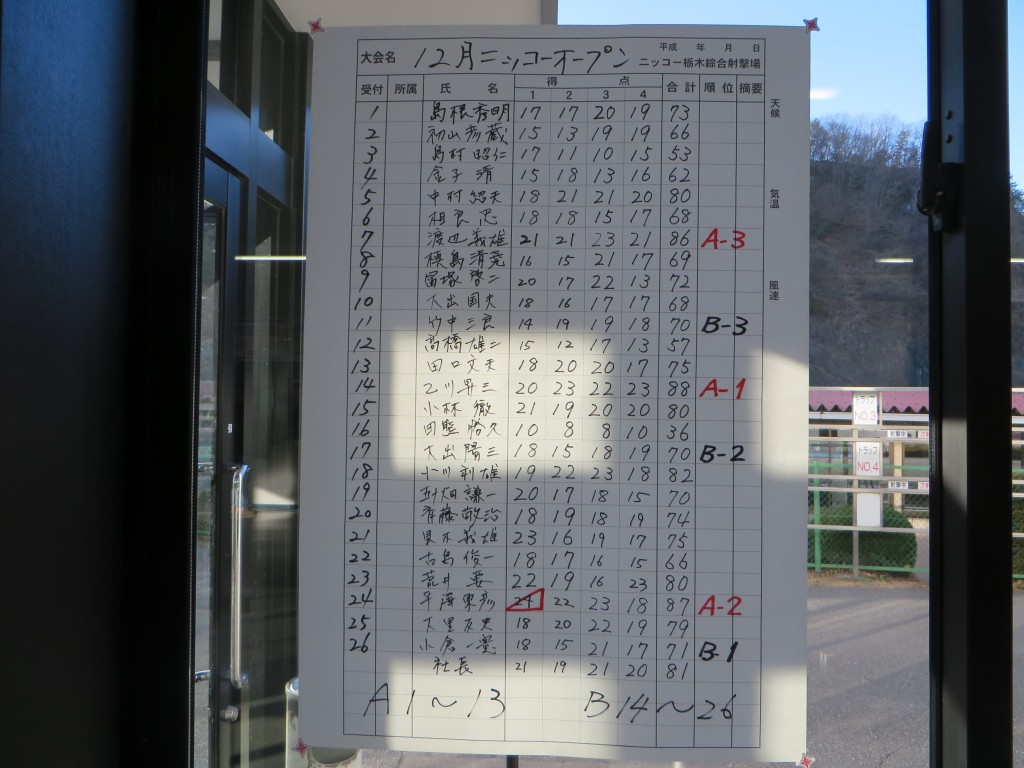 大会名 12月ニッコーオープン 平成 年 月 日
ニッコー栃木綜合射撃場
受付 所属 氏 名 得 点 合計 順位 摘要
1 2 3 4
1 島根秀明 17 17 20 19 73
2 初山 蔵 15 13 19 19 66
3 島村昭仁 17 11 10 15 53
4 金子清 15 18 13 16 62
5 中村紹夫 18 21 21 20 80
6 相良忠 18 18 15 17 68
7 渡辺義雄 21 21 23 21 86 A-3
8 島清 16 15 21 17 69
9 冨塚啓二 20 17 22 13 72
10 大出国夫 18 16 17 17 68
11 竹中三良 14 19 19 18 70 B-3
12 高橋雄二 15 12 17 13 57
13 田口文夫 18 20 20 17 75
14 乙川昇三 20 23 22 23 88 A-1
15 小林徹 21 19 20 20 80
16 田 勝久 10 8 8 10 36
17 大出陽三 18 15 18 19 70 B-2
18 川利雄 19 22 23 18 82
19 畑謙一 20 17 18 15 70
20 斉藤敬治 18 19 18 19 74
21 木義雄 23 16 19 17 75
22 古島俊一 18 17 16 15 66
23 荒井要 22 19 16 23 80
24 平澤東彦 24 22 23 18 87 A-2
25 大里 18 20 22 19 79
26 小倉一 18 15 21 17 71 B-1
社長 21 19 21 20 81
A 1〜13 B 14〜26
天候
気温
風速
トラップ
NO.3
トラップ
NO.4
射撃中
射撃中